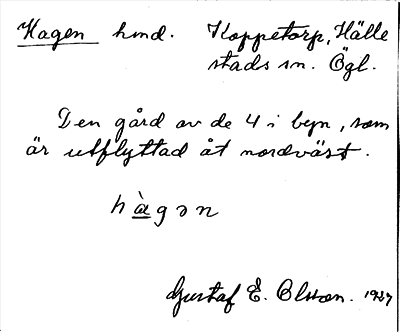 Hagen hmd. Koppetorp, Hälle
stads sn. Ögl.
Den gård av de 4 i byn, som
är utflyttad åt nordväst.
hàgən
Gustaf E. Olsson. 1937